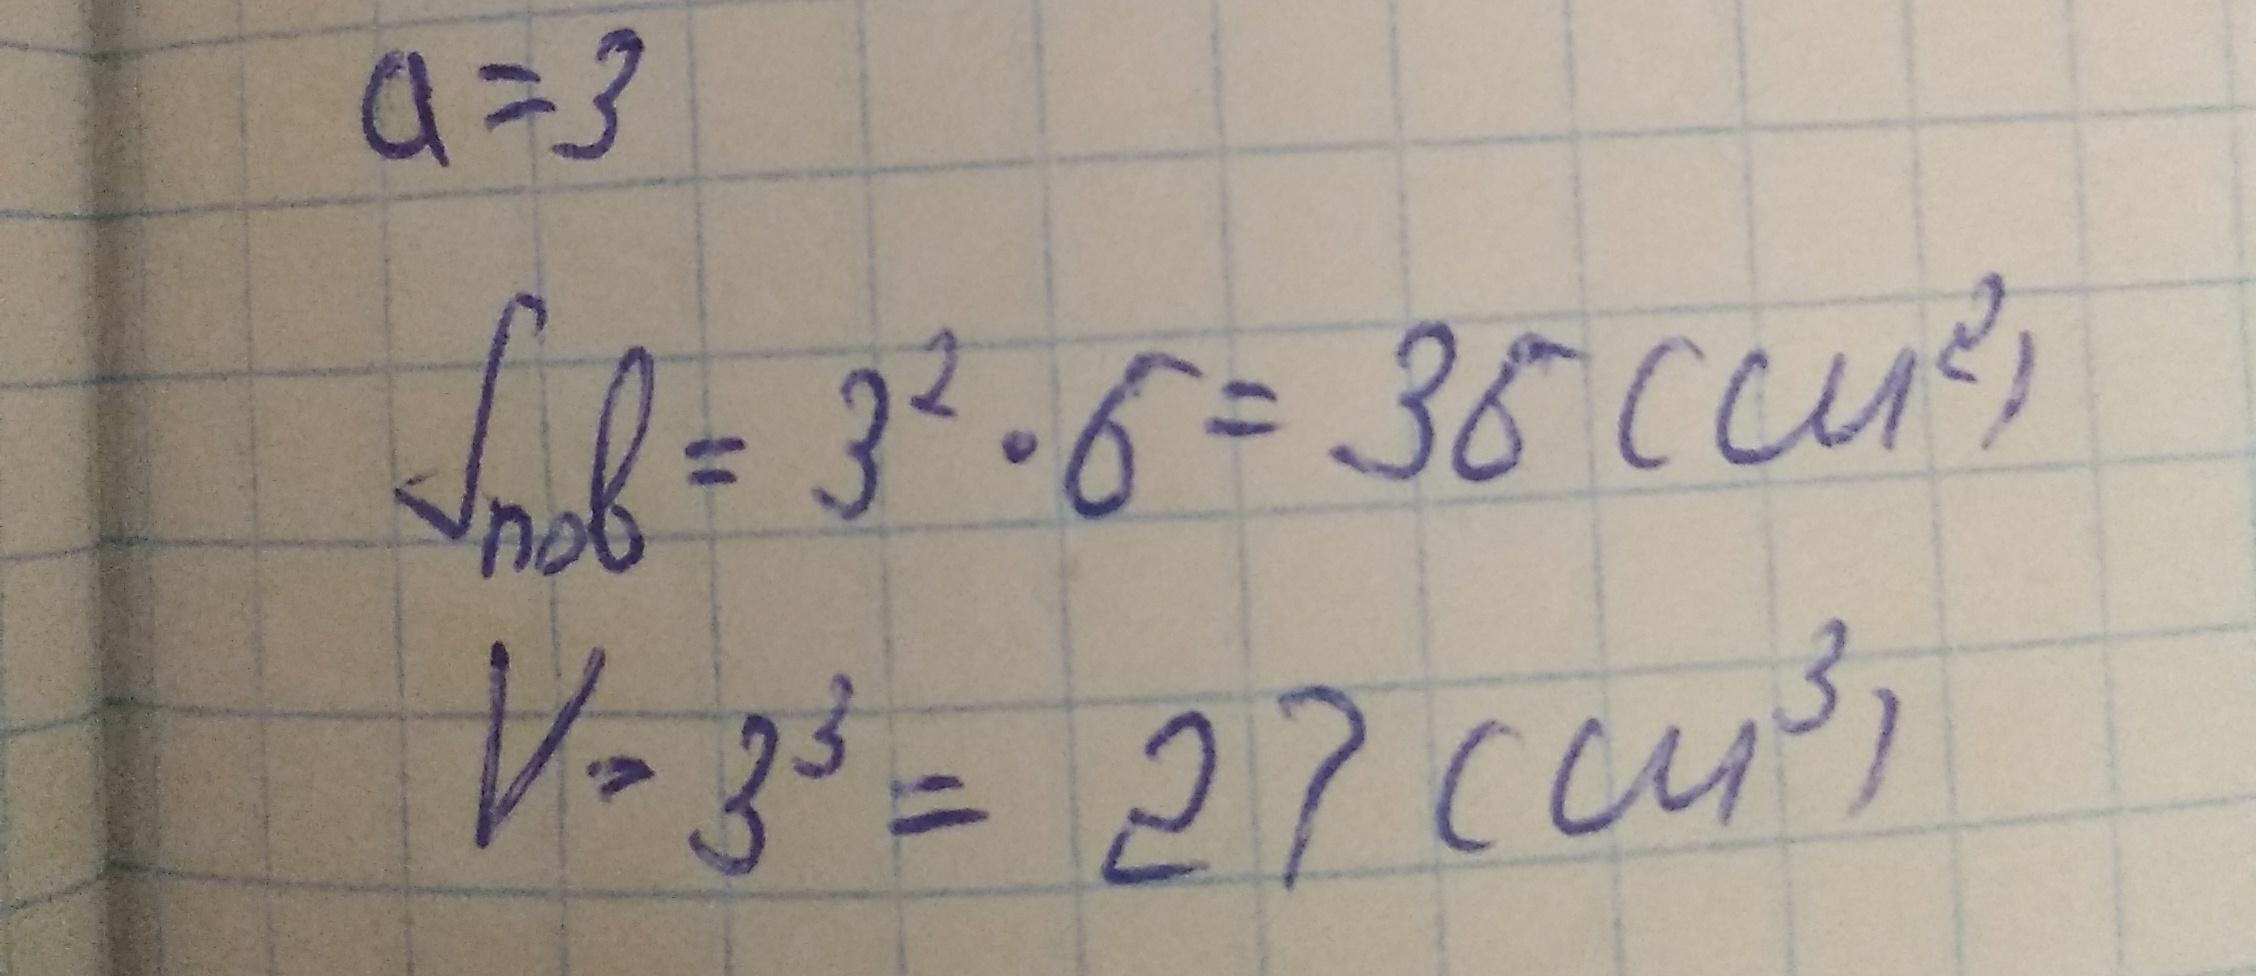 a = 3
Sпов = 3² · 6 = 36 (см²)
V = 3³ = 27 (см³)